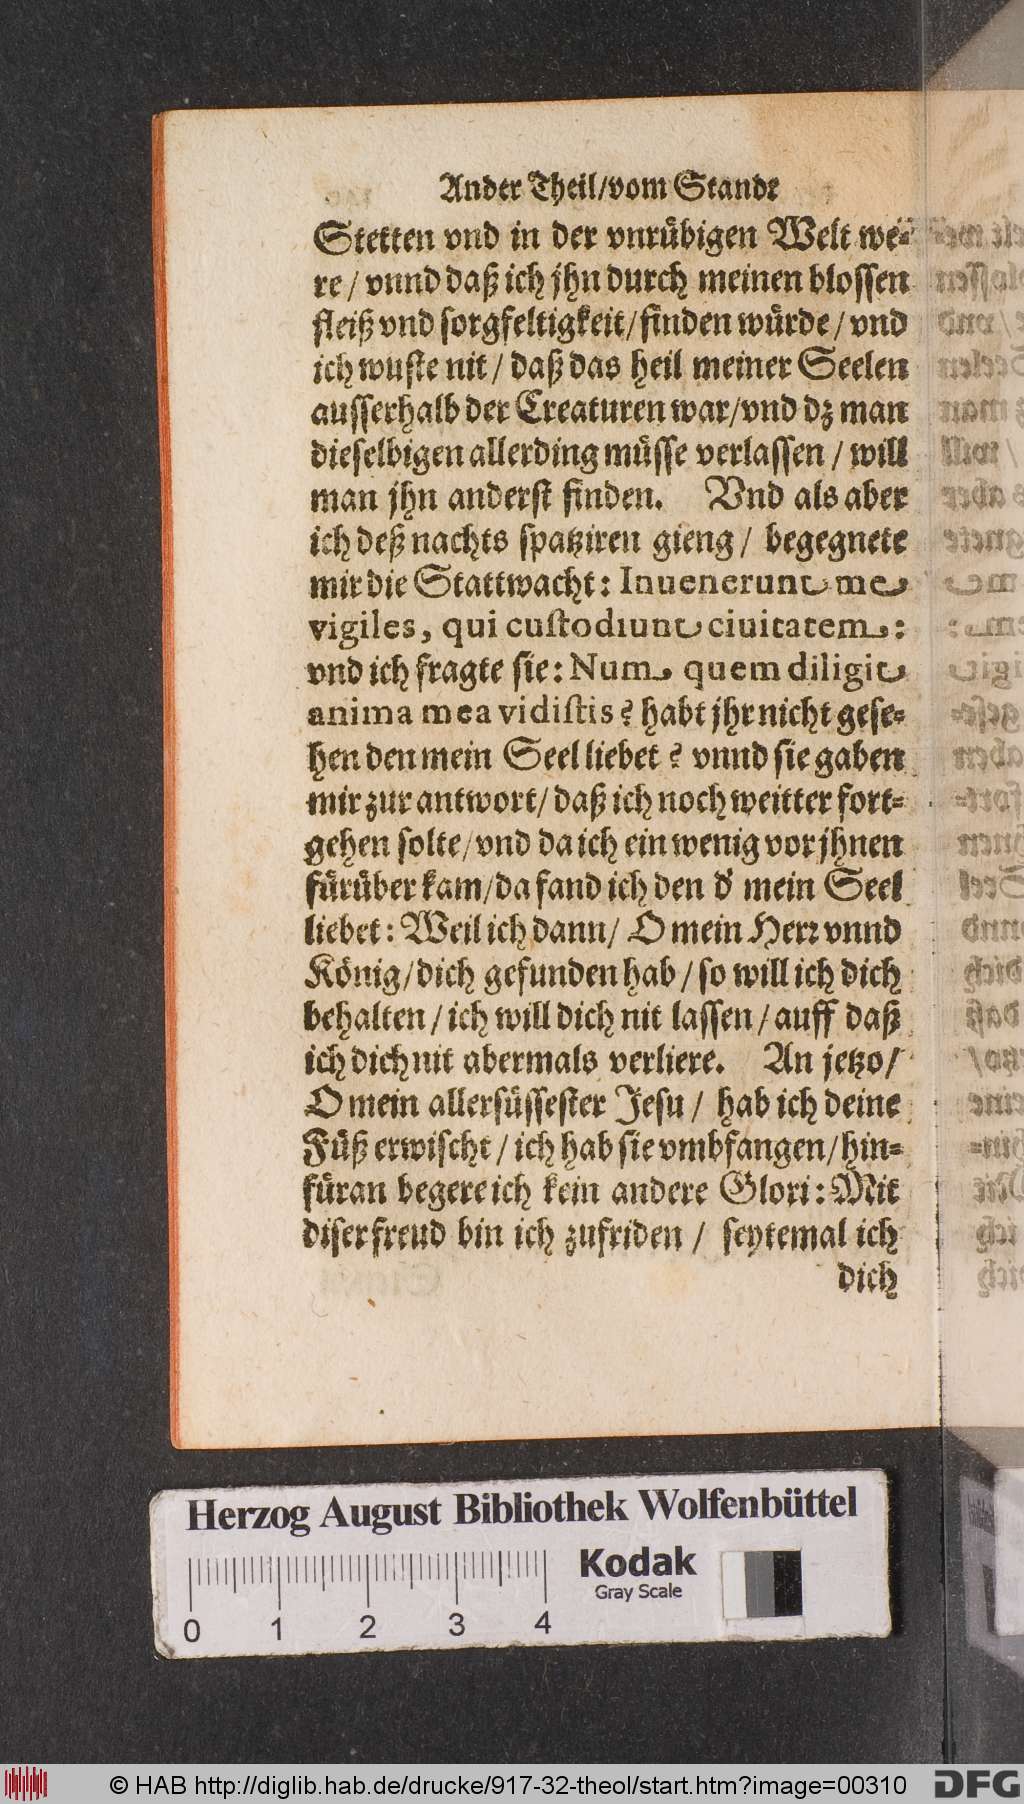 Ander Theil/vom Stande
Stetten vnd in der vnrübigen Welt we-
re/ vnnd daß ich jhn durch meinen blossen
fleiß vnd sorgfeltigkeit/finden würde/ vnd
ich wuste nit/ daß das heil meiner Seelen
ausserhalb der Creaturen war/vnd dz man
dieselbigen allerding müsse verlassen/ will
man jhn anderst finden. Vnd als aber
ich deß nachts spatziren gieng/ begegnete
mir die Stattwacht: Inuenerunt me
vigiles, qui custodiunt ciuitatem:
vnd ich fragte sie: Num quem diligit
anima mea vidistis? habt jhr nicht gese-
hen den mein Seel liebet? vnnd sie gaben
mir zur antwort/ daß ich noch weitter fort-
gehen solte/vnd da ich ein wenig vor jhnen
fürüber kam/da fand ich den d' mein Seel
liebet: Weil ich dann/ O mein Herr vnnd
König/dich gefunden hab/ so will ich dich
behalten/ ich will dich nit lassen/ auff daß
ich dich nit abermals verliere. An jetzo/
O mein allersüssester Jesu/ hab ich deine
Füß erwischt/ ich hab sie vmbfangen/hin-
füran begere ich kein andere Glori: Mit
diser freud bin ich zufriden/ seytemal ich
dich
Herzog August Bibliothek Wolfenbüttel
Kodak
Gray Scale
0 1 2 3 4
© HAB http://diglib.hab.de/drucke/917-32-theol/start.htm?image=00310
DFG